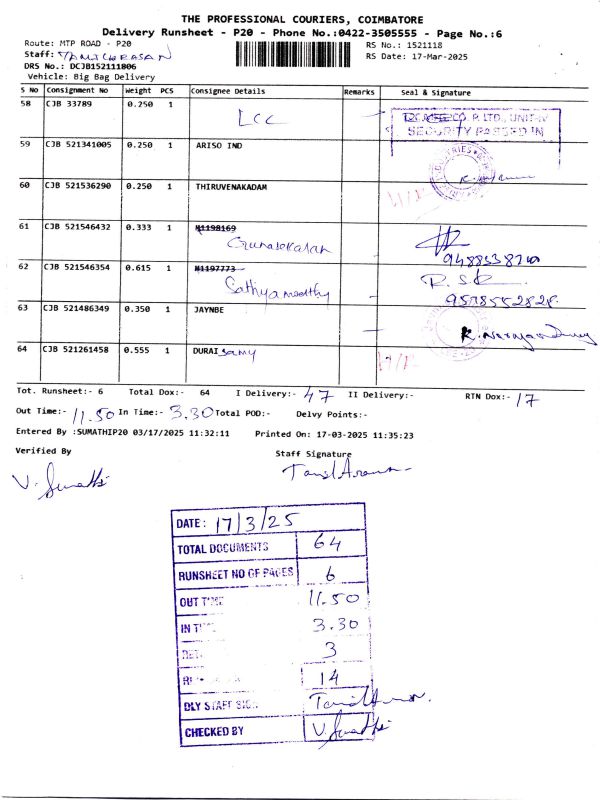 THE PROFESSIONAL COURIERS, COIMBATORE
Delivery Runsheet - P20 - Phone No.:0422-3505555 - Page No.:6
Route: MTP ROAD - P20 RS No.: 1521118
Staff: RS Date: 17-Mar-2025
DRS No.: DCJB152111806
Vehicle: Big Bag Delivery
S No Consignment No Weight PCS Consignee Details Remarks Seal & Signature
58 CJB 33789 0.250 1 LCC
CO. P. LTD., UNIT-IV
SECURITY PASSED IN
59 CJB 521341005 0.250 1 ARISO IND
60 CJB 521536290 0.250 1 THIRUVENAKADAM
61 CJB 521546432 0.333 1 M1198169
Gunasekaran
62 CJB 521546354 0.615 1 M1197773 R.S.K
Sathiyamoorthy 9578552828
63 CJB 521486349 0.350 1 JAYNBE
64 CJB 521261458 0.555 1 DURAI samy
Tot. Runsheet:- 6 Total Dox:- 64 I Delivery:- 47 II Delivery:- RTN Dox:- 17
Out Time:- 11.50 In Time:- 3.30 Total POD:- Delvy Points:-
Entered By :SUMATHIP20 03/17/2025 11:32:11 Printed On: 17-03-2025 11:35:23
Verified By Staff Signature
V. Sumathi
DATE: 17/3/25
TOTAL DOCUMENTS 64
RUNSHEET NO OF PAGES 6
OUT TIME 11.50
IN TIME 3.30
3
14
DLY STAFF SIGN
CHECKED BY V. Sumathi